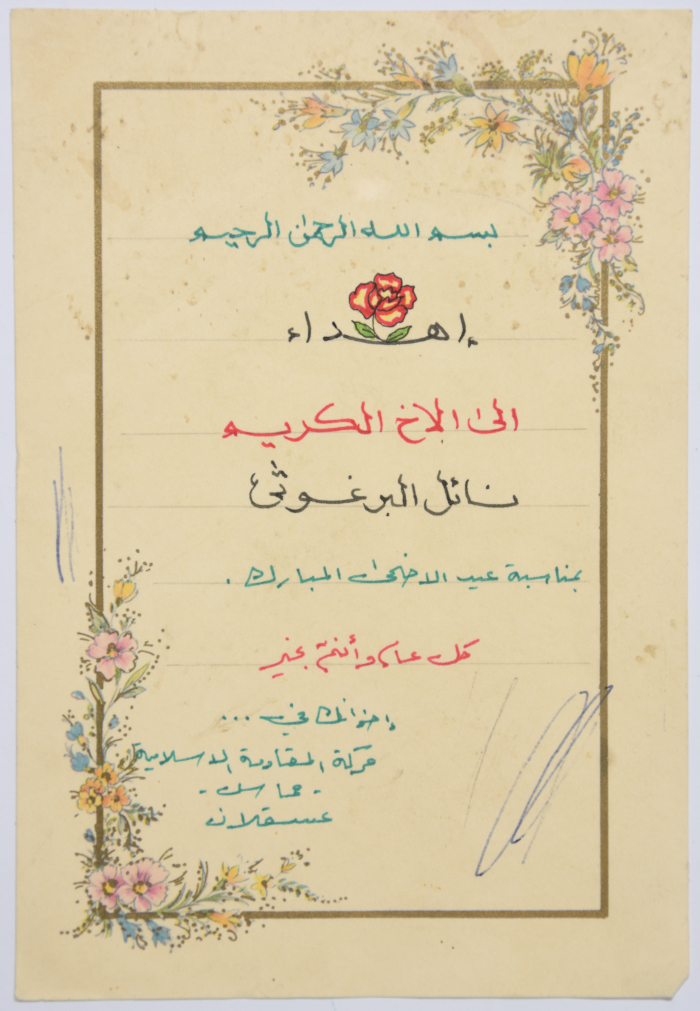 بسم الله الرحمن الرحيم
إهداء
الى الاخ الكريم
نائل البرغوثي
بمناسبة عيد الاضحى المبارك .
كل عام وأنتم بخير
إخوانك في ...
حركة المقاومة الاسلامية
- حماس -
عسقلان